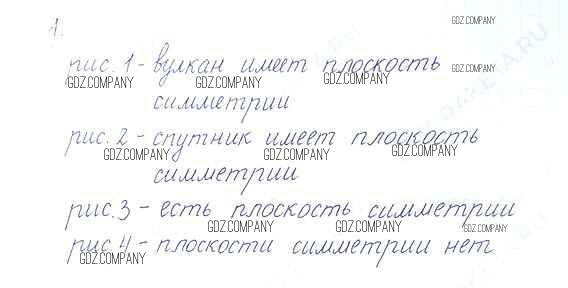 1.
GDZ.COMPANY
рис. 1 - вулкан имеет плоскость
GDZ.COMPANY GDZ.COMPANY GDZ.COMPANY GDZ.COMPANY
симметрии
рис. 2 - спутник имеет плоскость
GDZ.COMPANY GDZ.COMPANY GDZ.COMPANY
симметрии
рис. 3 - есть плоскость симметрии
GDZ.COMPANY GDZ.COMPANY GDZ.COMPANY
рис. 4 - плоскости симметрии нет
GDZ.COMPANY